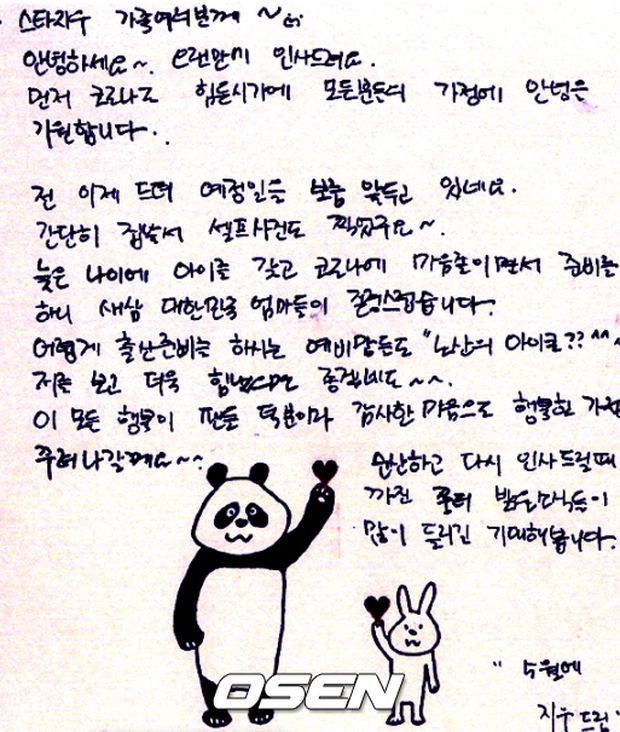 스타지우 가족여러분께 ~
안녕하세요~. 오랜만에 인사드려요.
먼저 코로나로 힘든시기에 모든분들의 가정에 안녕을
기원합니다.
전 이제 드뎌 예정일을 보름 앞두고 있네요.
간단히 집에서 셀프사진도 찍었구요~.
늦은 나이에 아이를 갖고 코로나에 마음졸이면서 준비를
하니 새삼 대한민국 엄마들이 존경스럽습니다.
어렵게 출산준비를 하시는 예비맘들도 "노산의 아이콘?? ^^~
저를 보고 더욱 힘냈으면 좋겠네요~~.
이 모든 행복이 팬들 덕분이라 감사한 마음으로 행복한 가정
꾸려나갈께요~~.
순산하고 다시 인사드릴때
까진 좀더 밝은소식들이
많이 들리길 기대해봅니다.
OSEN
" 5월에
지우 드림 "